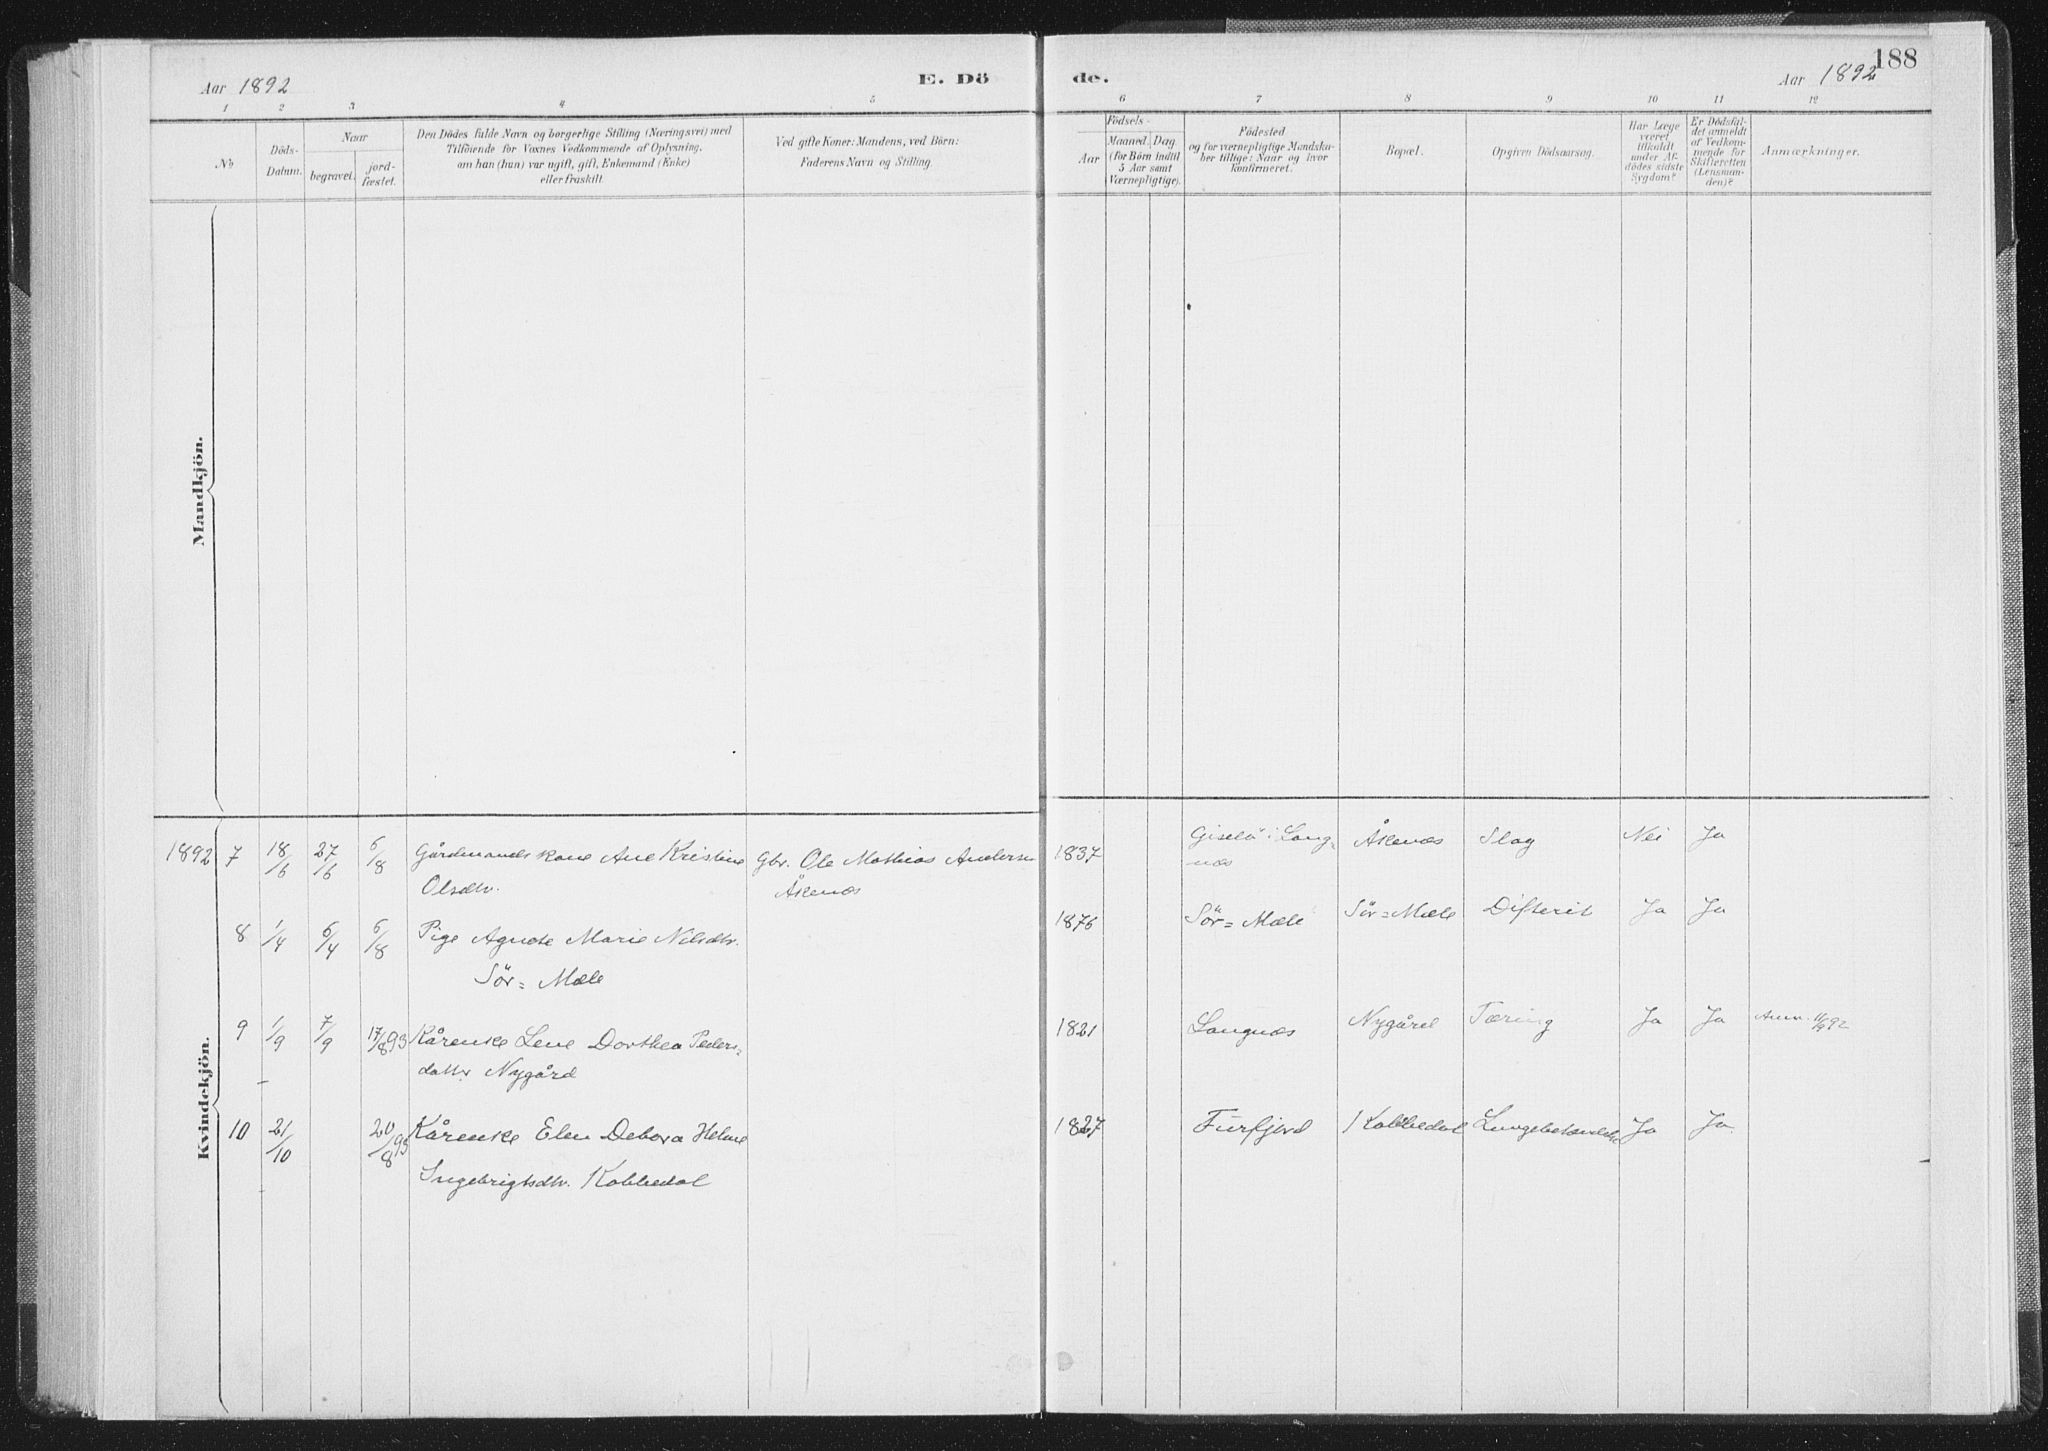 188
Aar 1892
E. Dö
de.
Aar 1892
1 2 3 4 5 6 7 8 9 10 11 12
No
Döds-
Datum.
Naar
begravet.
jord-
fæstet.
Den Dödes fulde Navn og borgerlige Stilling (Næringsvei) med
Tilföiende for Voxnes Vedkommende af Oplysning,
om han (hun) var ugift, gift, Enkemand (Enke)
eller fraskilt.
Ved gifte Koner: Mandens, ved Börn:
Faderens Navn og Stilling.
Födsels-
Aar
Maaned. Dag.
(for Börn indtil
5 Aar samt
Værnepligtige).
Födested
og for værnepligtige Mandska-
ber tillige: Naar og hvor
konfirmeret.
Bopæl.
Opgiven Dödsaarsag.
Har Læge
været
tilkaldt
under Af-
dödes sidste
Sygdom?
Er Dödsfal-
det anmeldt
af Vedkom-
mende for
Skifteretten
(Lensman-
den)?
Anmærkninger.
Mandkjön.
Kvindekjön.
1892 7 18/6 27/6 6/8 Gårdmandskone Ane Kristine Gbr. Ole Mathias Andersen 1837 Giselö i Lang- Åkenæs Slag Nei Ja
Olsdtr. Åkenæs næs
8 1/4 6/4 6/8 Pige Agnete Marie Nilsdtr. 1876 Sör=Mæle Sör=Mæle Difterit Ja Ja
Sör=Mæle
9 1/9 7/9 17/8 93 Kårenke Lene Dorthea Peders= 1821 Langnæs Nygård Tæring Ja Ja Anm. 11/9 92
datter Nygård
10 21/10 20/8 93 Kårenke Elen Debora Helene 1827 Fürfjord Kobbedal Lungebetændelse Ja Ja.
Ingebrigtsdtr. Kobbedal